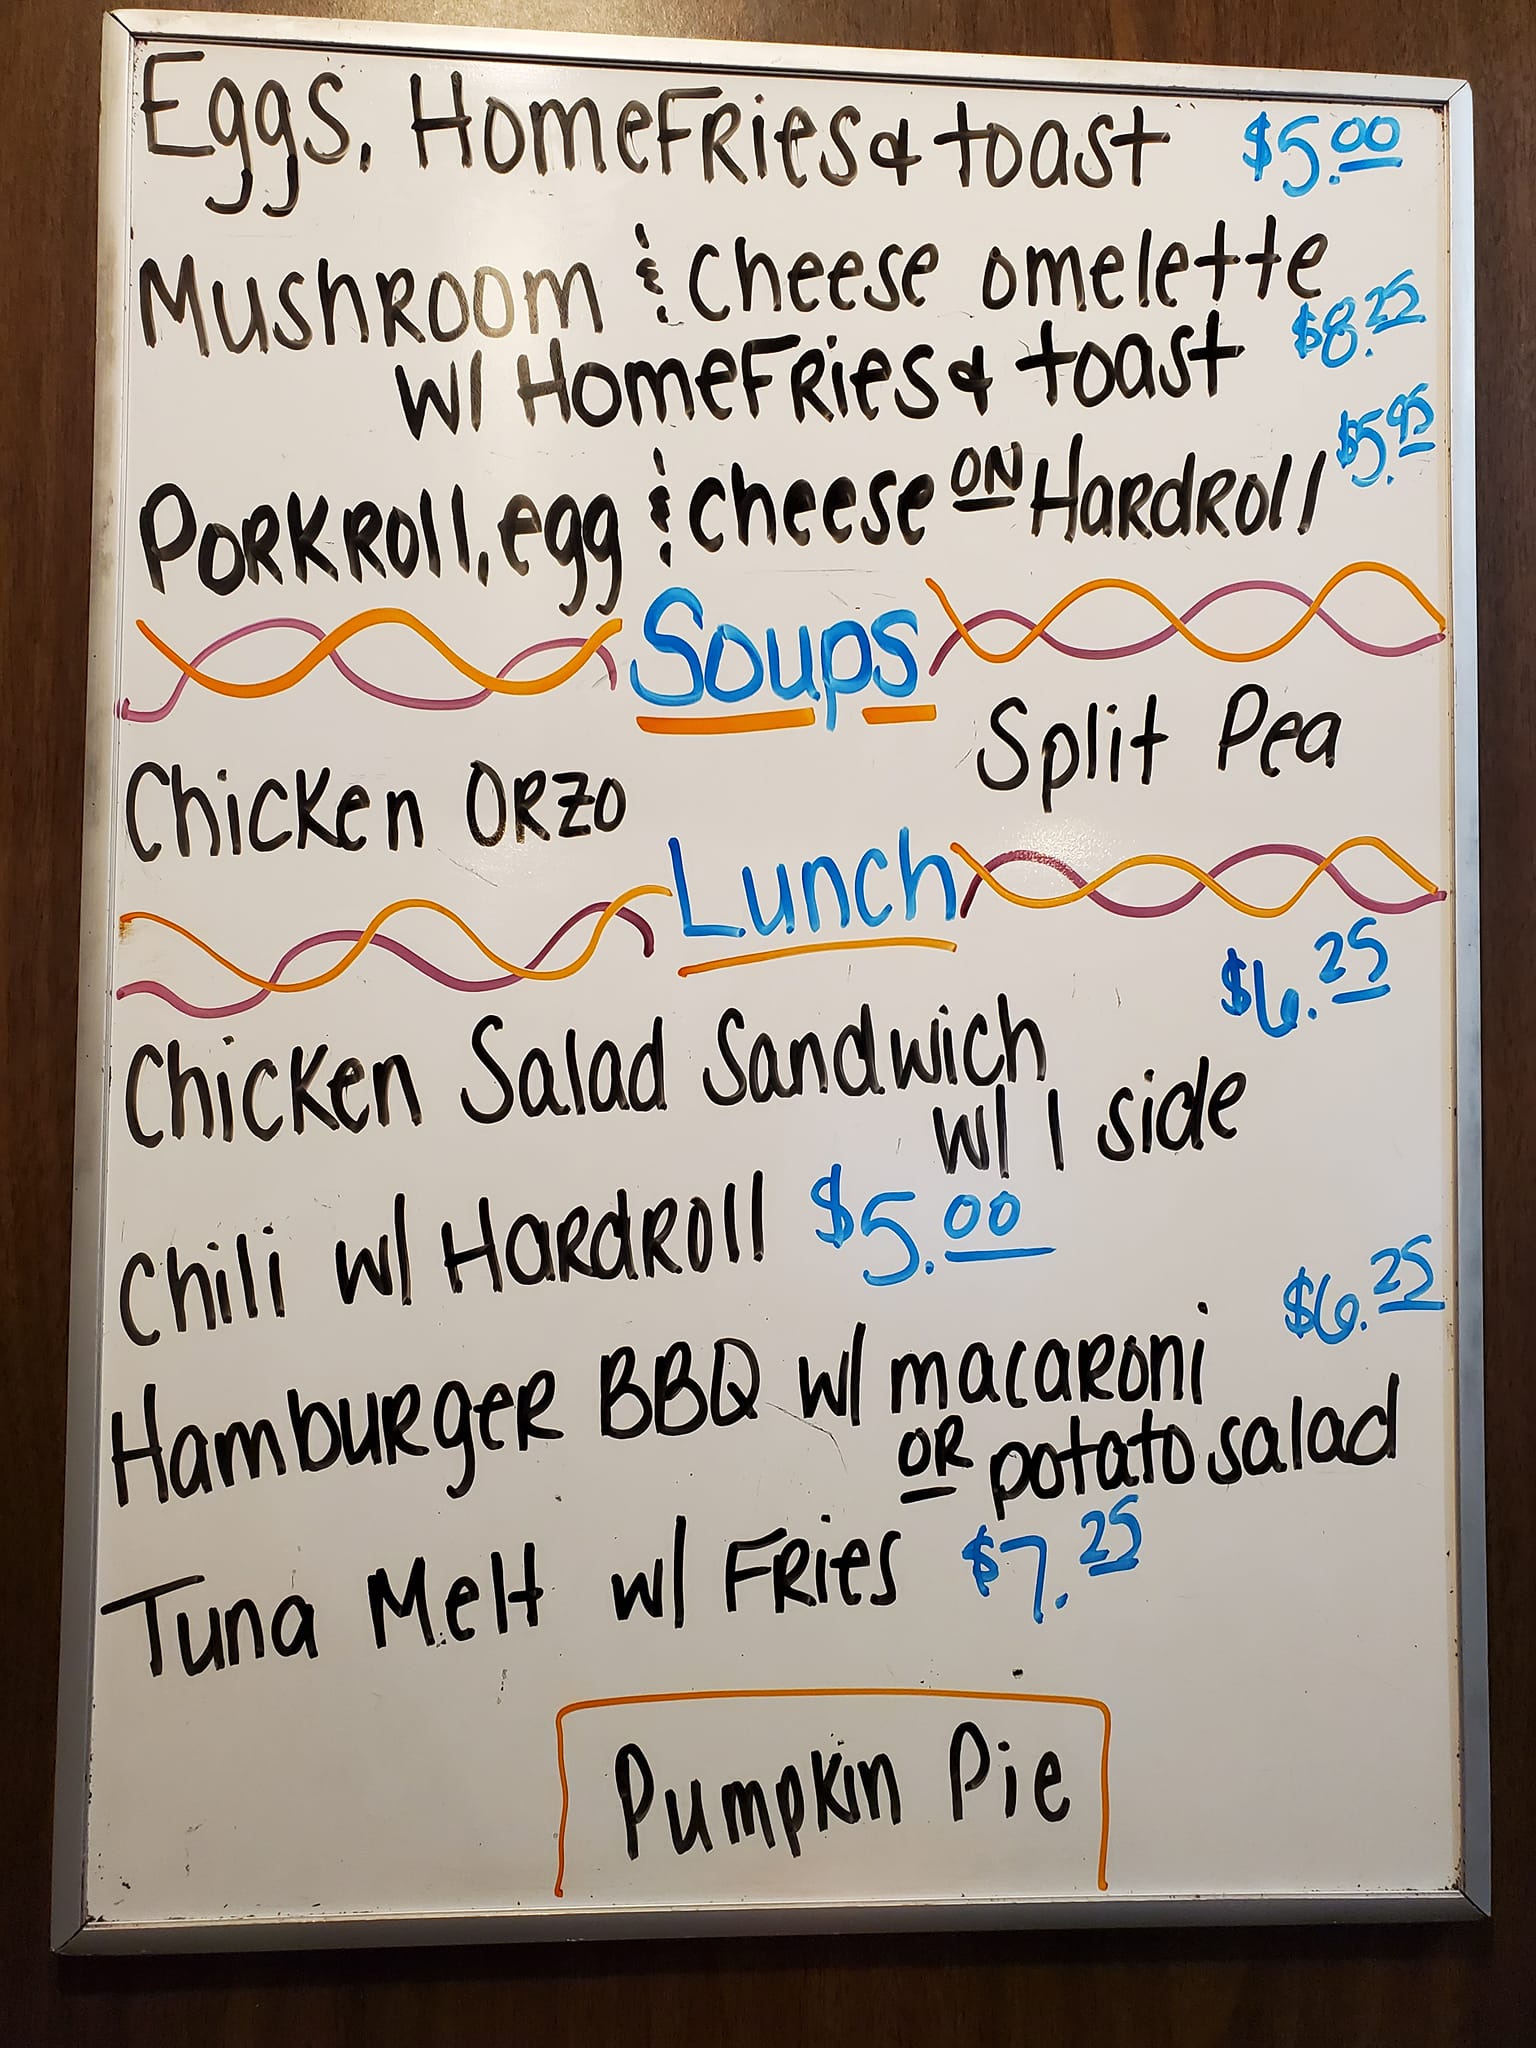 Eggs, HomeFRies & toast $5.00
MushRoom & cheese omelette
w/ HomeFRies & toast $8.25
PoRKRoll, egg & cheese ON HaRdRoll $5.95
Soups
Chicken ORzo
Split Pea
Lunch
Chicken Salad Sandwich $6.25
w/ 1 side
Chili w/ HaRdRoll $5.00
HambuRgeR BBQ w/ macaRoni $6.25
OR potato salad
Tuna Melt w/ FRies $7.25
Pumpkin Pie